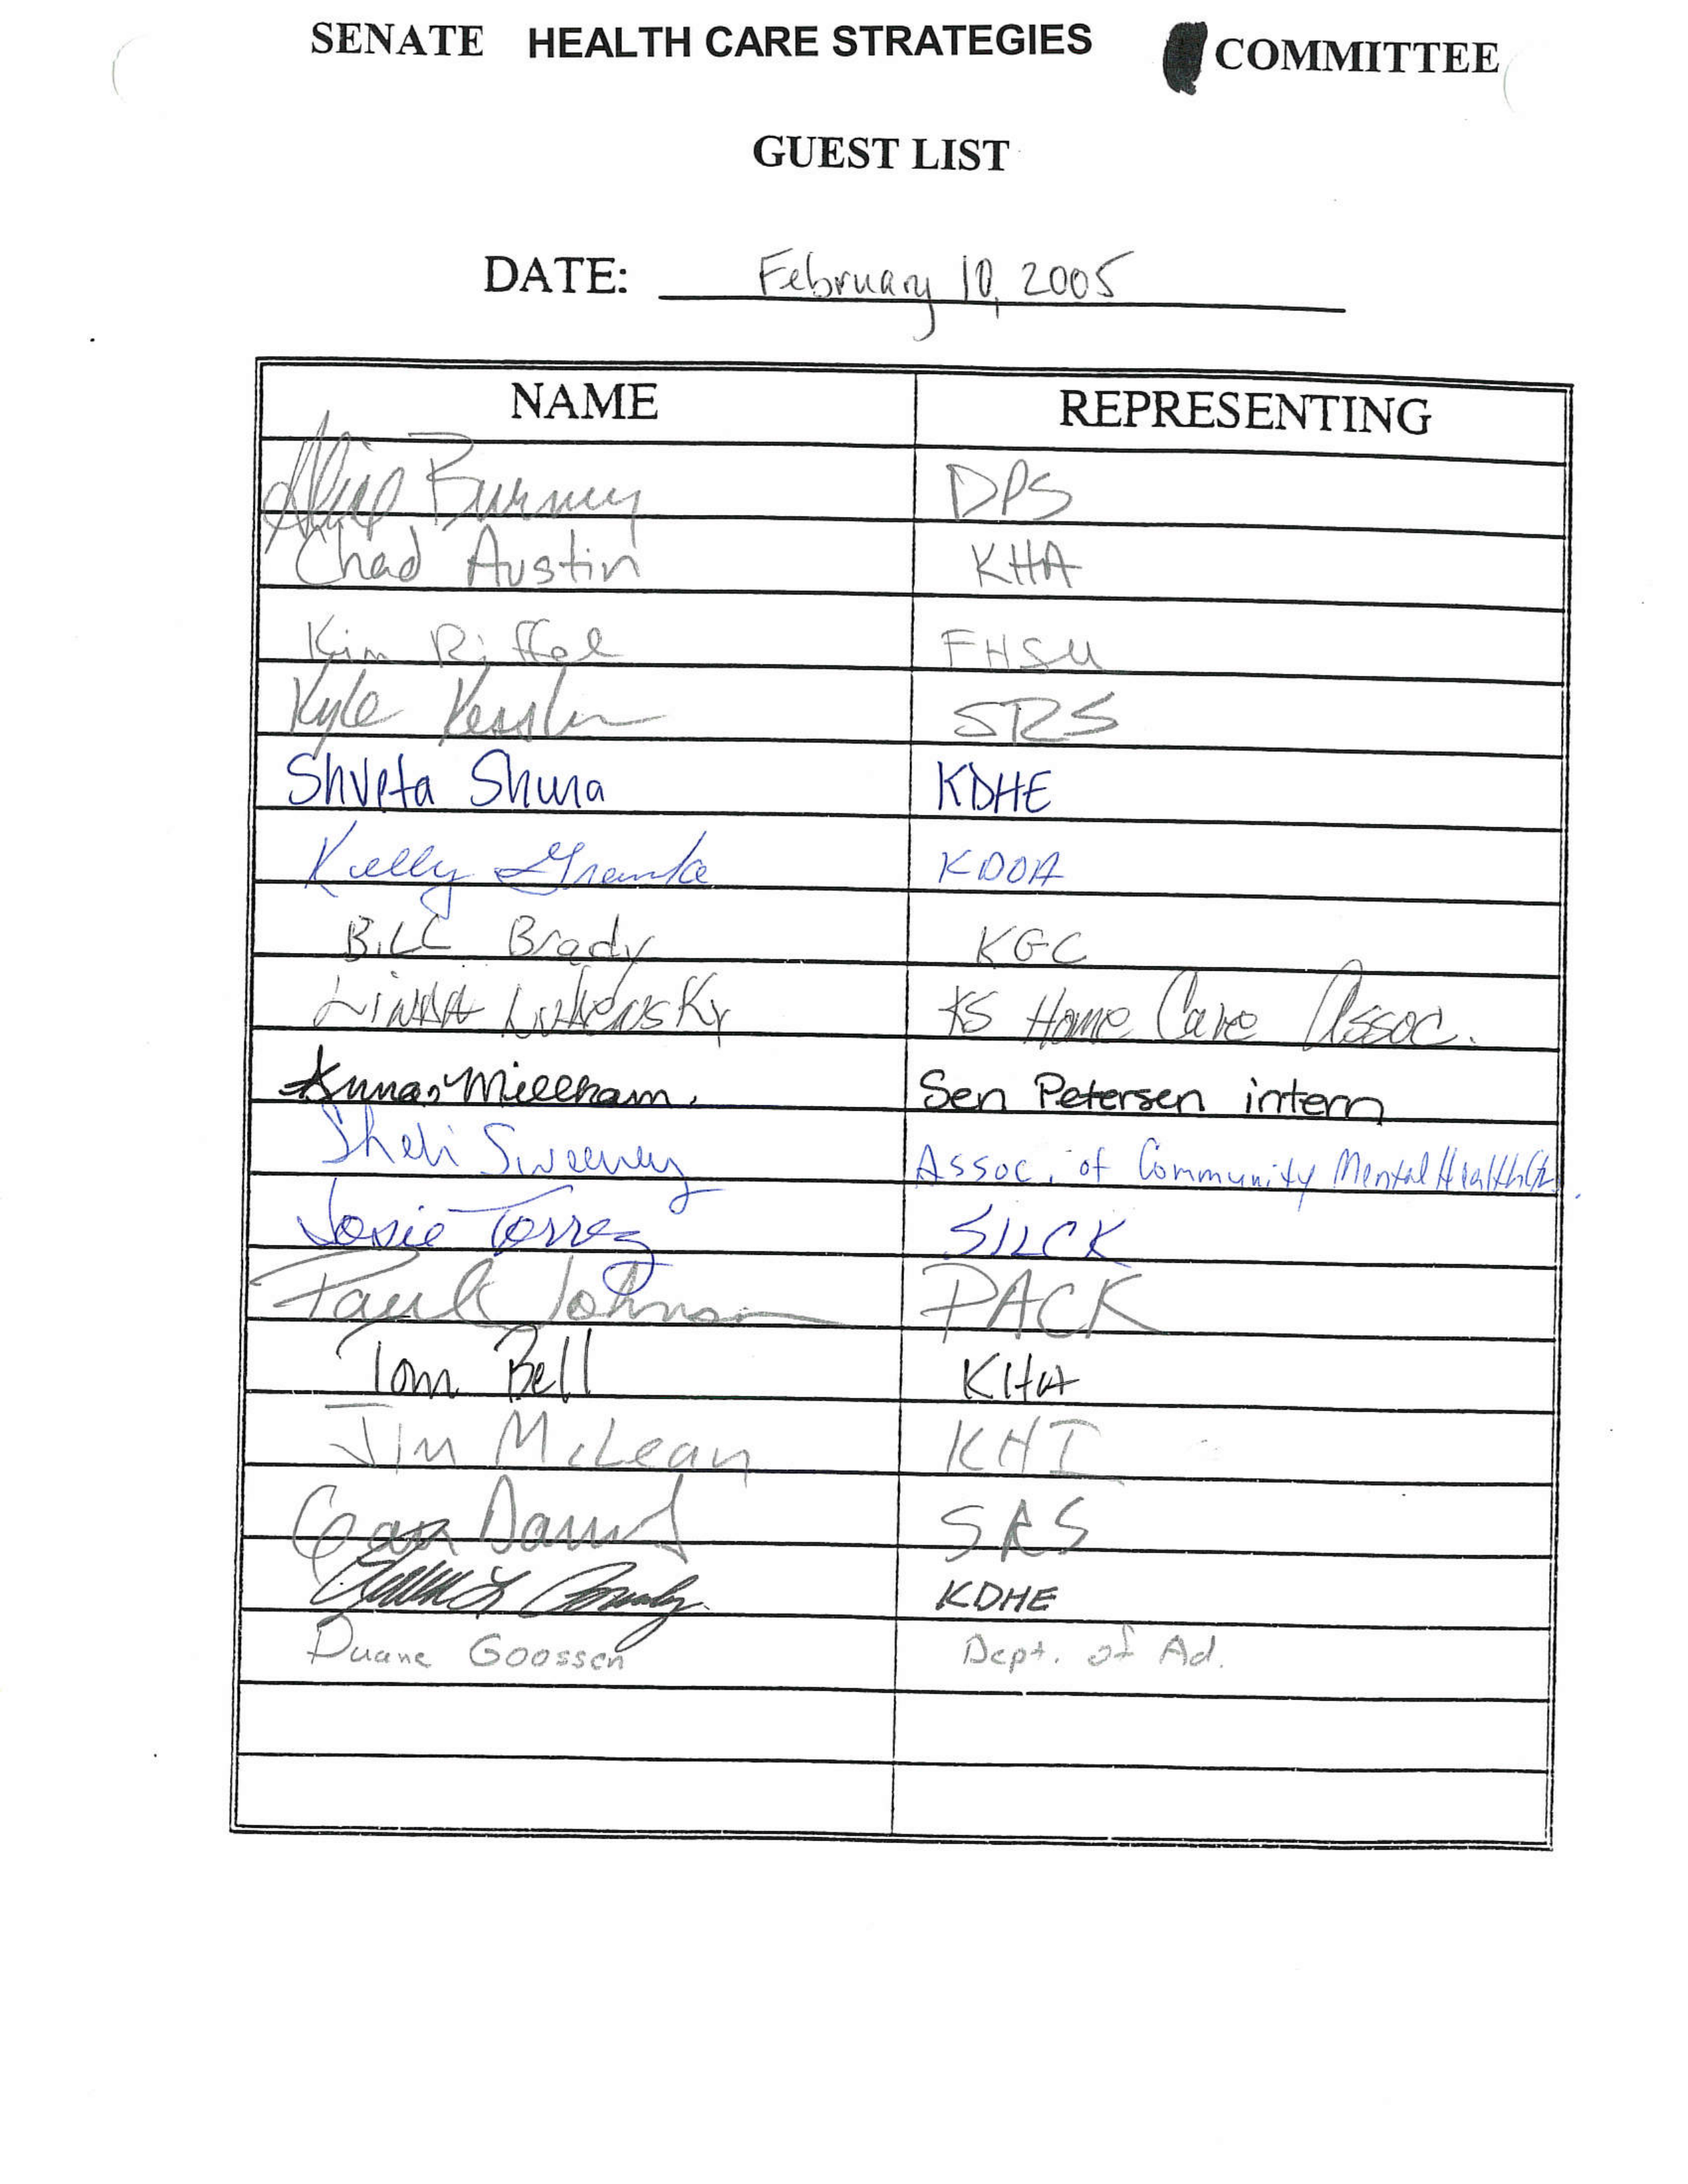 SENATE HEALTH CARE STRATEGIES COMMITTEE
GUEST LIST
DATE: February 10, 2005
NAME REPRESENTING
Burney DPS
Chad Austin KHA
Kim Riffel FHSU
Kyle Kessler SRS
KDHE
Kelly KDOA
BiLL Brady KGC
LiNDA LubensKy KS Home Care Assoc.
Anna Sen Petersen intern
Sheli Sweeney Assoc. of Community Mental Health
Josie Torrez SILCK
Paul Johnson PACK
Tom Bell KHA
Jim McLean KHI
SRS
KDHE
Duane Goossen Dept. of Ad.